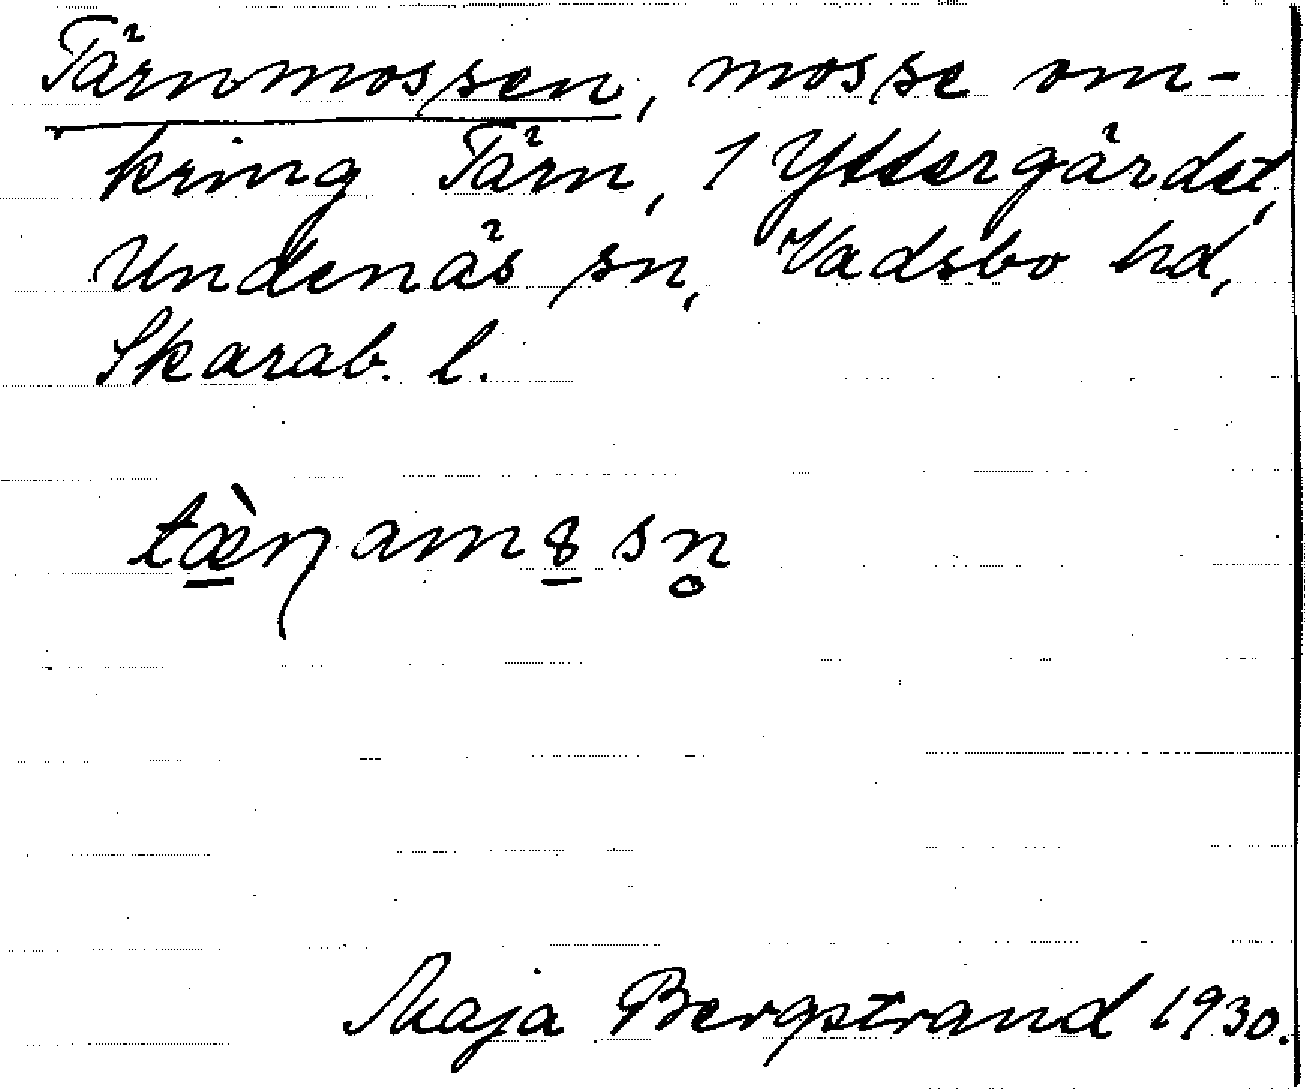 Tärnmossen, mosse om-
kring Tärn, 1 Yttergärdet,
Undenäs sn, Vadsbo hd,
Skarab. l.
tæ̠̀ɳam8̠sn̥
Maja Bergstrand 1930.